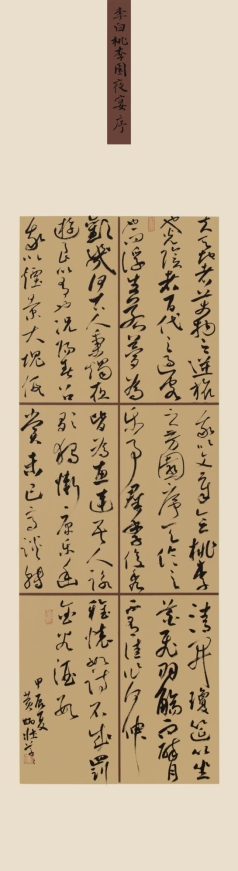 李白桃李園夜宴序
夫天地者萬物之逆旅
也光陰者百代之過客
而浮生若夢為
歡幾何古人秉燭夜
遊良有以也況陽春召
我以煙景大塊假
我以文章會桃李
之芳園序天倫之
樂事群季俊秀
皆為惠連吾人詠
歌獨慚康樂幽
賞未已高談轉
清開瓊筵以坐
花飛羽觴而醉月
不有佳作何伸
雅懷如詩不成罰
金谷酒數
甲辰夏
黃